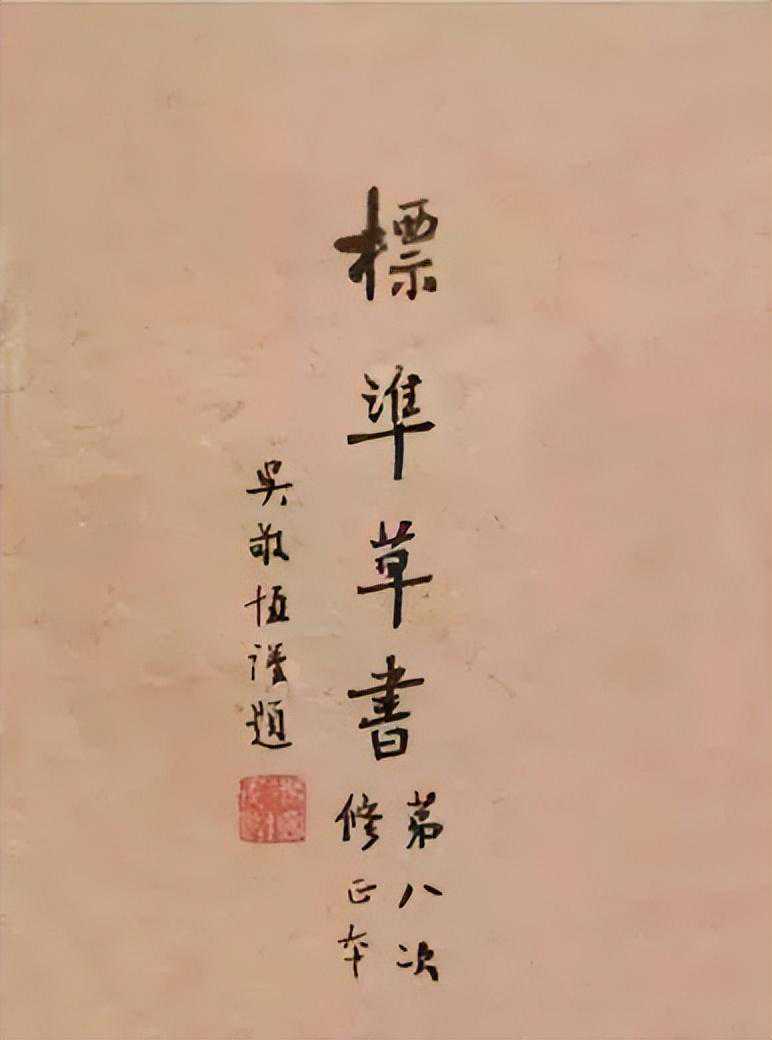 標準草書
第八次
修正本
吳敬恒謹題